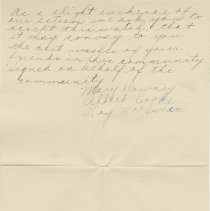 As a slight evidence of
our esteem we ask you to
accept this watch that
it may convey to you
the best wishes of your
friends in this community
signed on behalf of the
community
Mary Downey
Albert Cooke
Roy